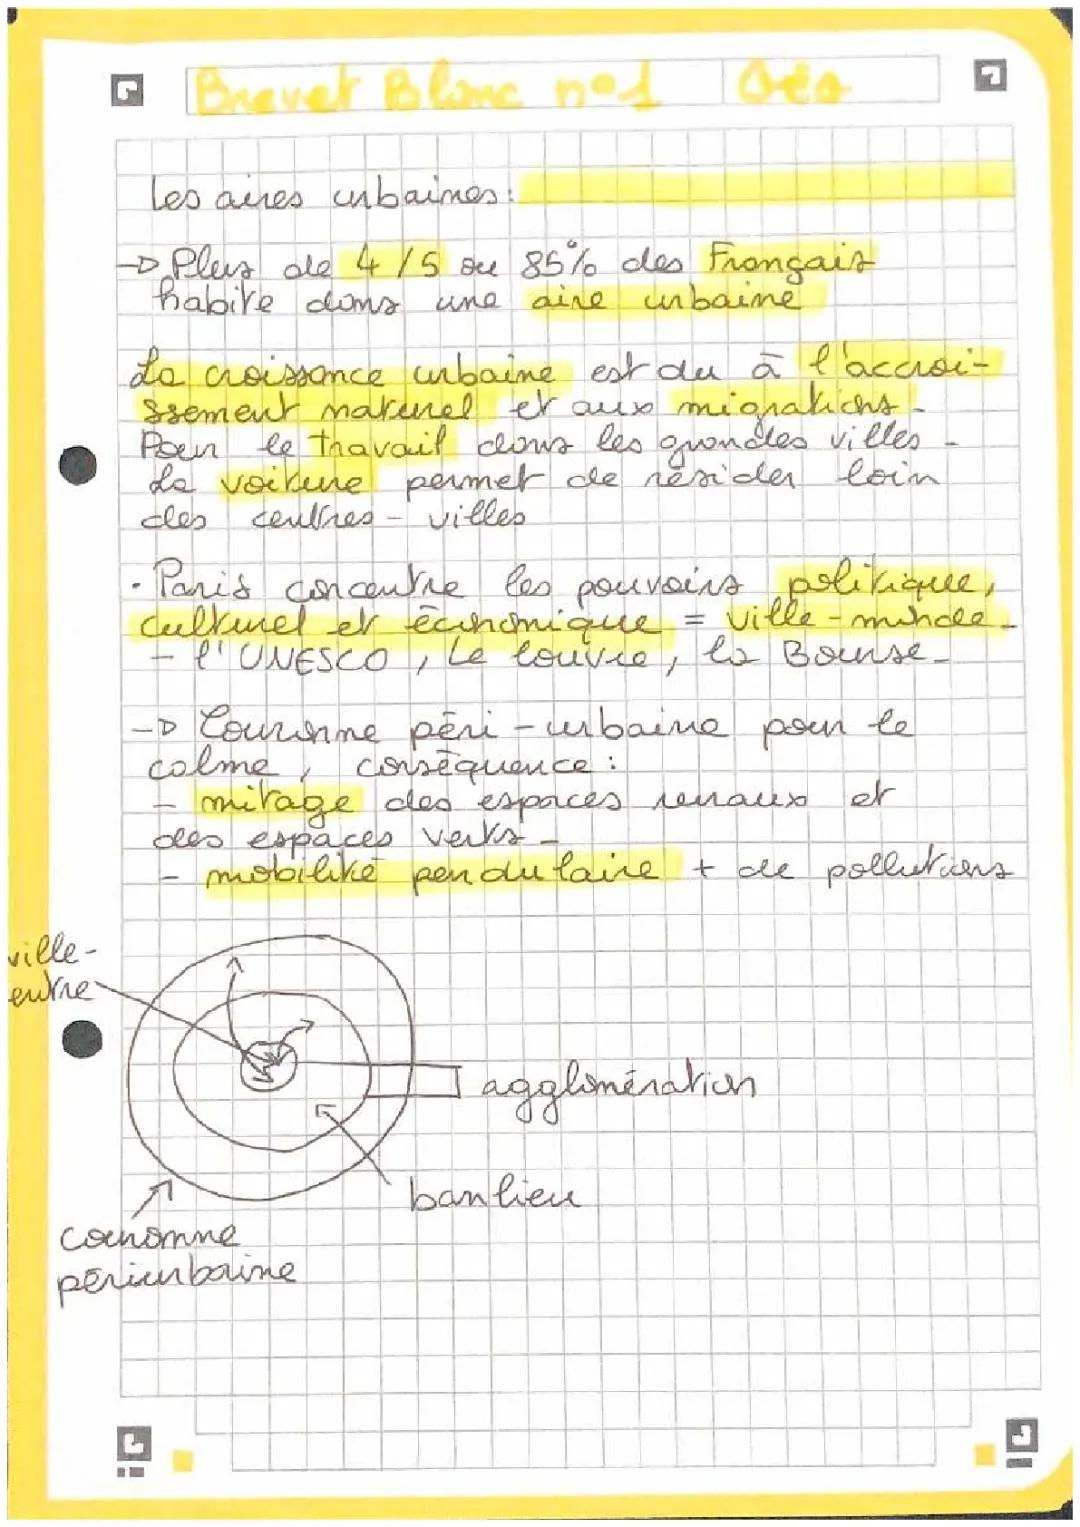 Brevet Blanc n°1 Géo
Les aires urbaines :
→ Plus de 4/5 ou 85% des Français
habite dans une aire urbaine
La croissance urbaine est du à l'accroi-
ssement naturel et aux migrations.
Pour le travail dans les grandes villes -
La voiture permet de résider loin
des centres-villes
· Paris concentre les pouvoirs politique,
culturel et économique = ville-monde -
- l'UNESCO, Le louvre, la Bourse -
→ Couronne péri-urbaine pour le
calme, conséquence :
- mitage des espaces ruraux et
des espaces verts -
- mobilité pendulaire + de pollutions
ville-
entre
agglomération
banlieu
couronne
périurbaine